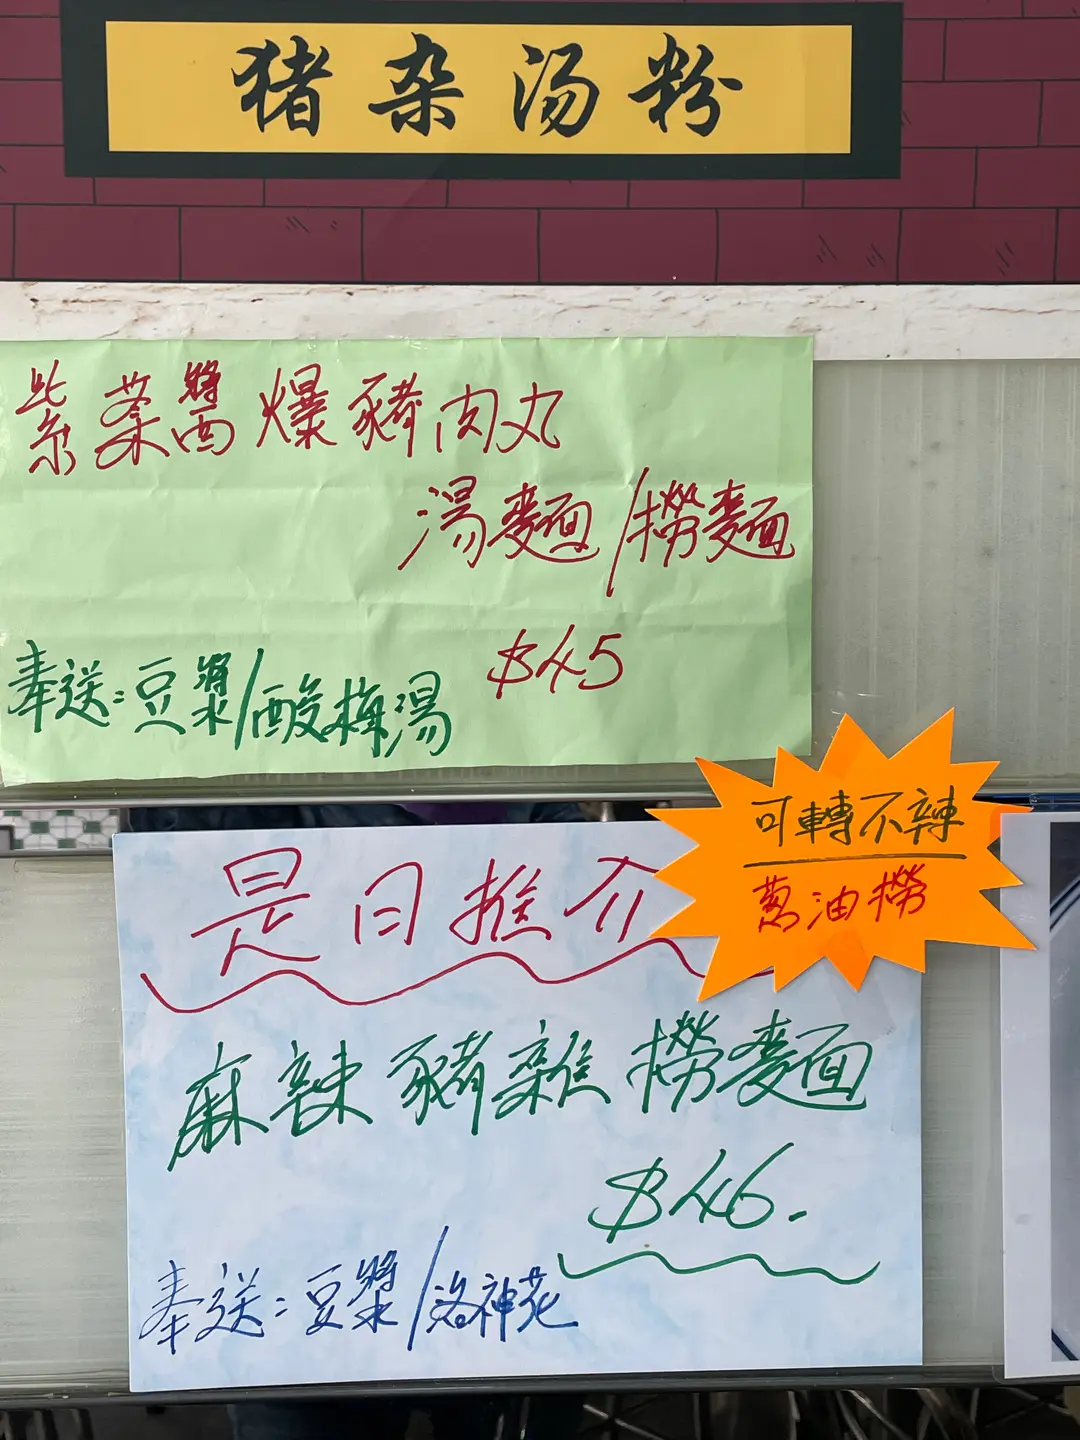 猪杂汤粉
紫菜醬爆豬肉丸
湯麵/撈麵
$45
奉送:豆漿/酸梅湯
可轉不辣
蔥油撈
是日推介
麻辣豬雜撈麵
$46.
奉送:豆漿/洛神花